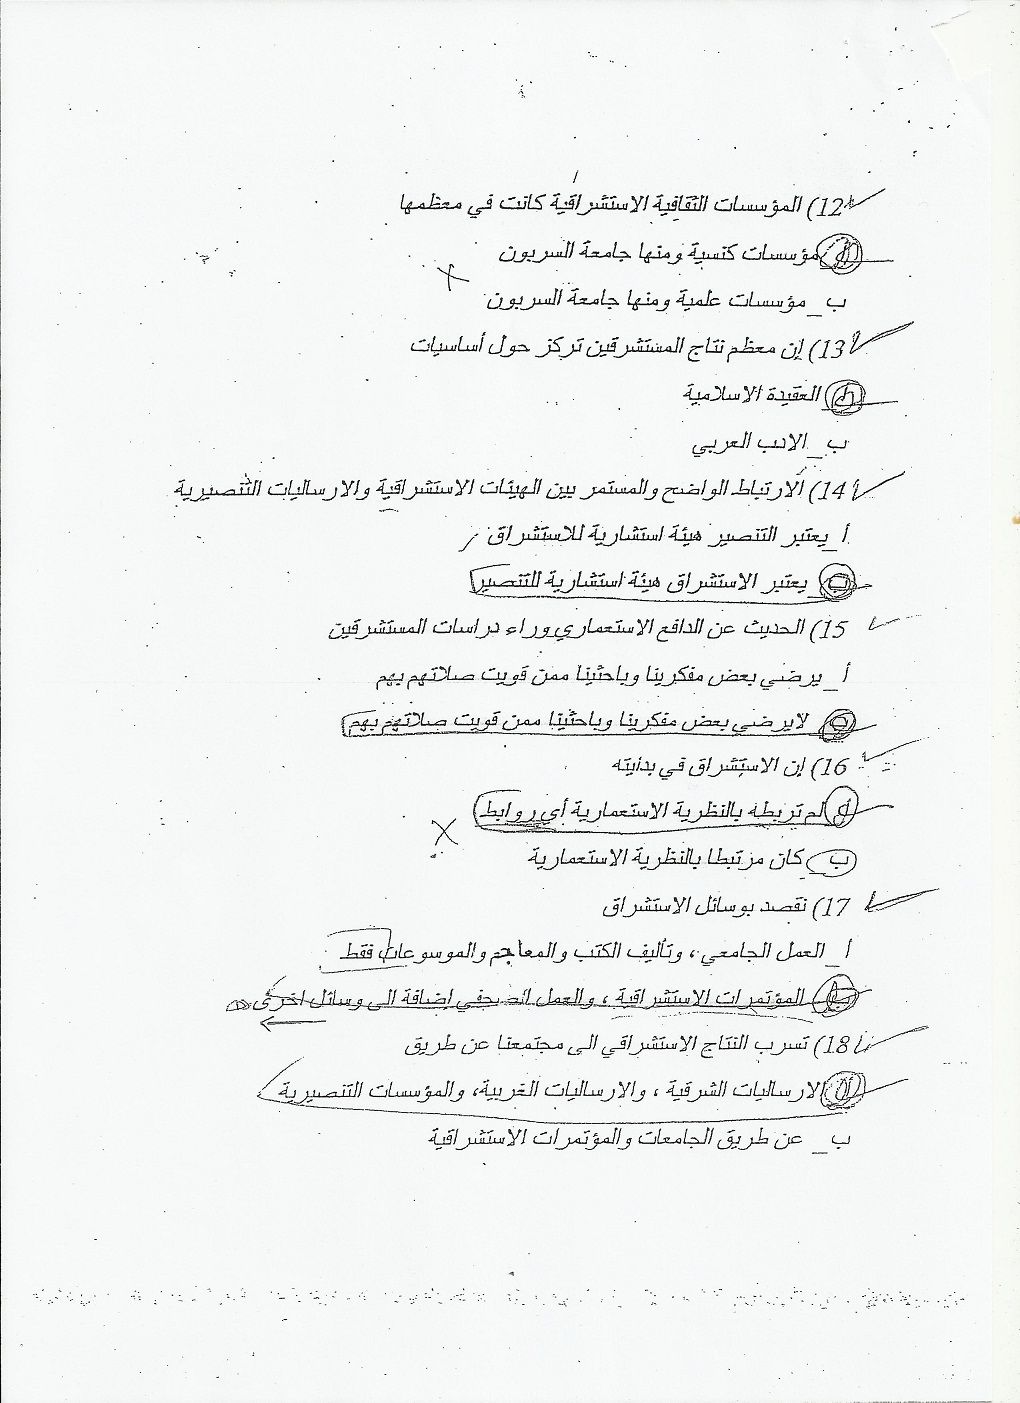 12) المؤسسات الثقافية الاستشراقية كانت في معظمها
أ_ مؤسسات كنسية ومنها جامعة السربون
ب_ مؤسسات علمية ومنها جامعة السربون
13) إن معظم نتاج المستشرقين تركز حول أساسيات
أ_ العقيدة الاسلامية
ب_ الادب العربي
14) الارتباط الواضح والمستمر بين الهيئات الاستشراقية والارساليات التنصيرية
أ_ يعتبر التنصير هيئة استشارية للاستشراق
ب_ يعتبر الاستشراق هيئة استشارية للتنصير
15) الحديث عن الدافع الاستعماري وراء دراسات المستشرقين
أ_ يرضي بعض مفكرينا وباحثينا ممن قويت صلاتهم بهم
ب_ لايرضي بعض مفكرينا وباحثينا ممن قويت صلاتهم بهم
16) إن الاستشراق في بدايته
أ_ لم تربطه بالنظرية الاستعمارية أي روابط
ب_ كان مرتبطا بالنظرية الاستعمارية
17) نقصد بوسائل الاستشراق
أ_ العمل الجامعي، وتأليف الكتب والمعاجم والموسوعات فقط
ب_ المؤتمرات الاستشراقية، والعمل الصحفي إضافة الى وسائل اخرى
18) تسرب النتاج الاستشراقي الى مجتمعنا عن طريق
أ_ الارساليات الشرقية، والارساليات الغربية، والمؤسسات التنصيرية
ب_ عن طريق الجامعات والمؤتمرات الاستشراقية